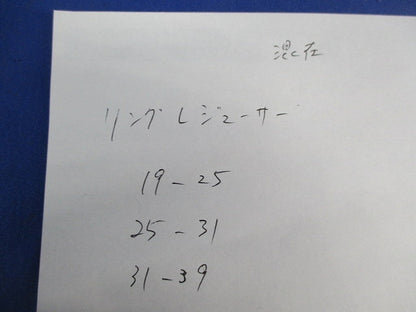 混在
リングレジューサー
19-25
25-31
31-39